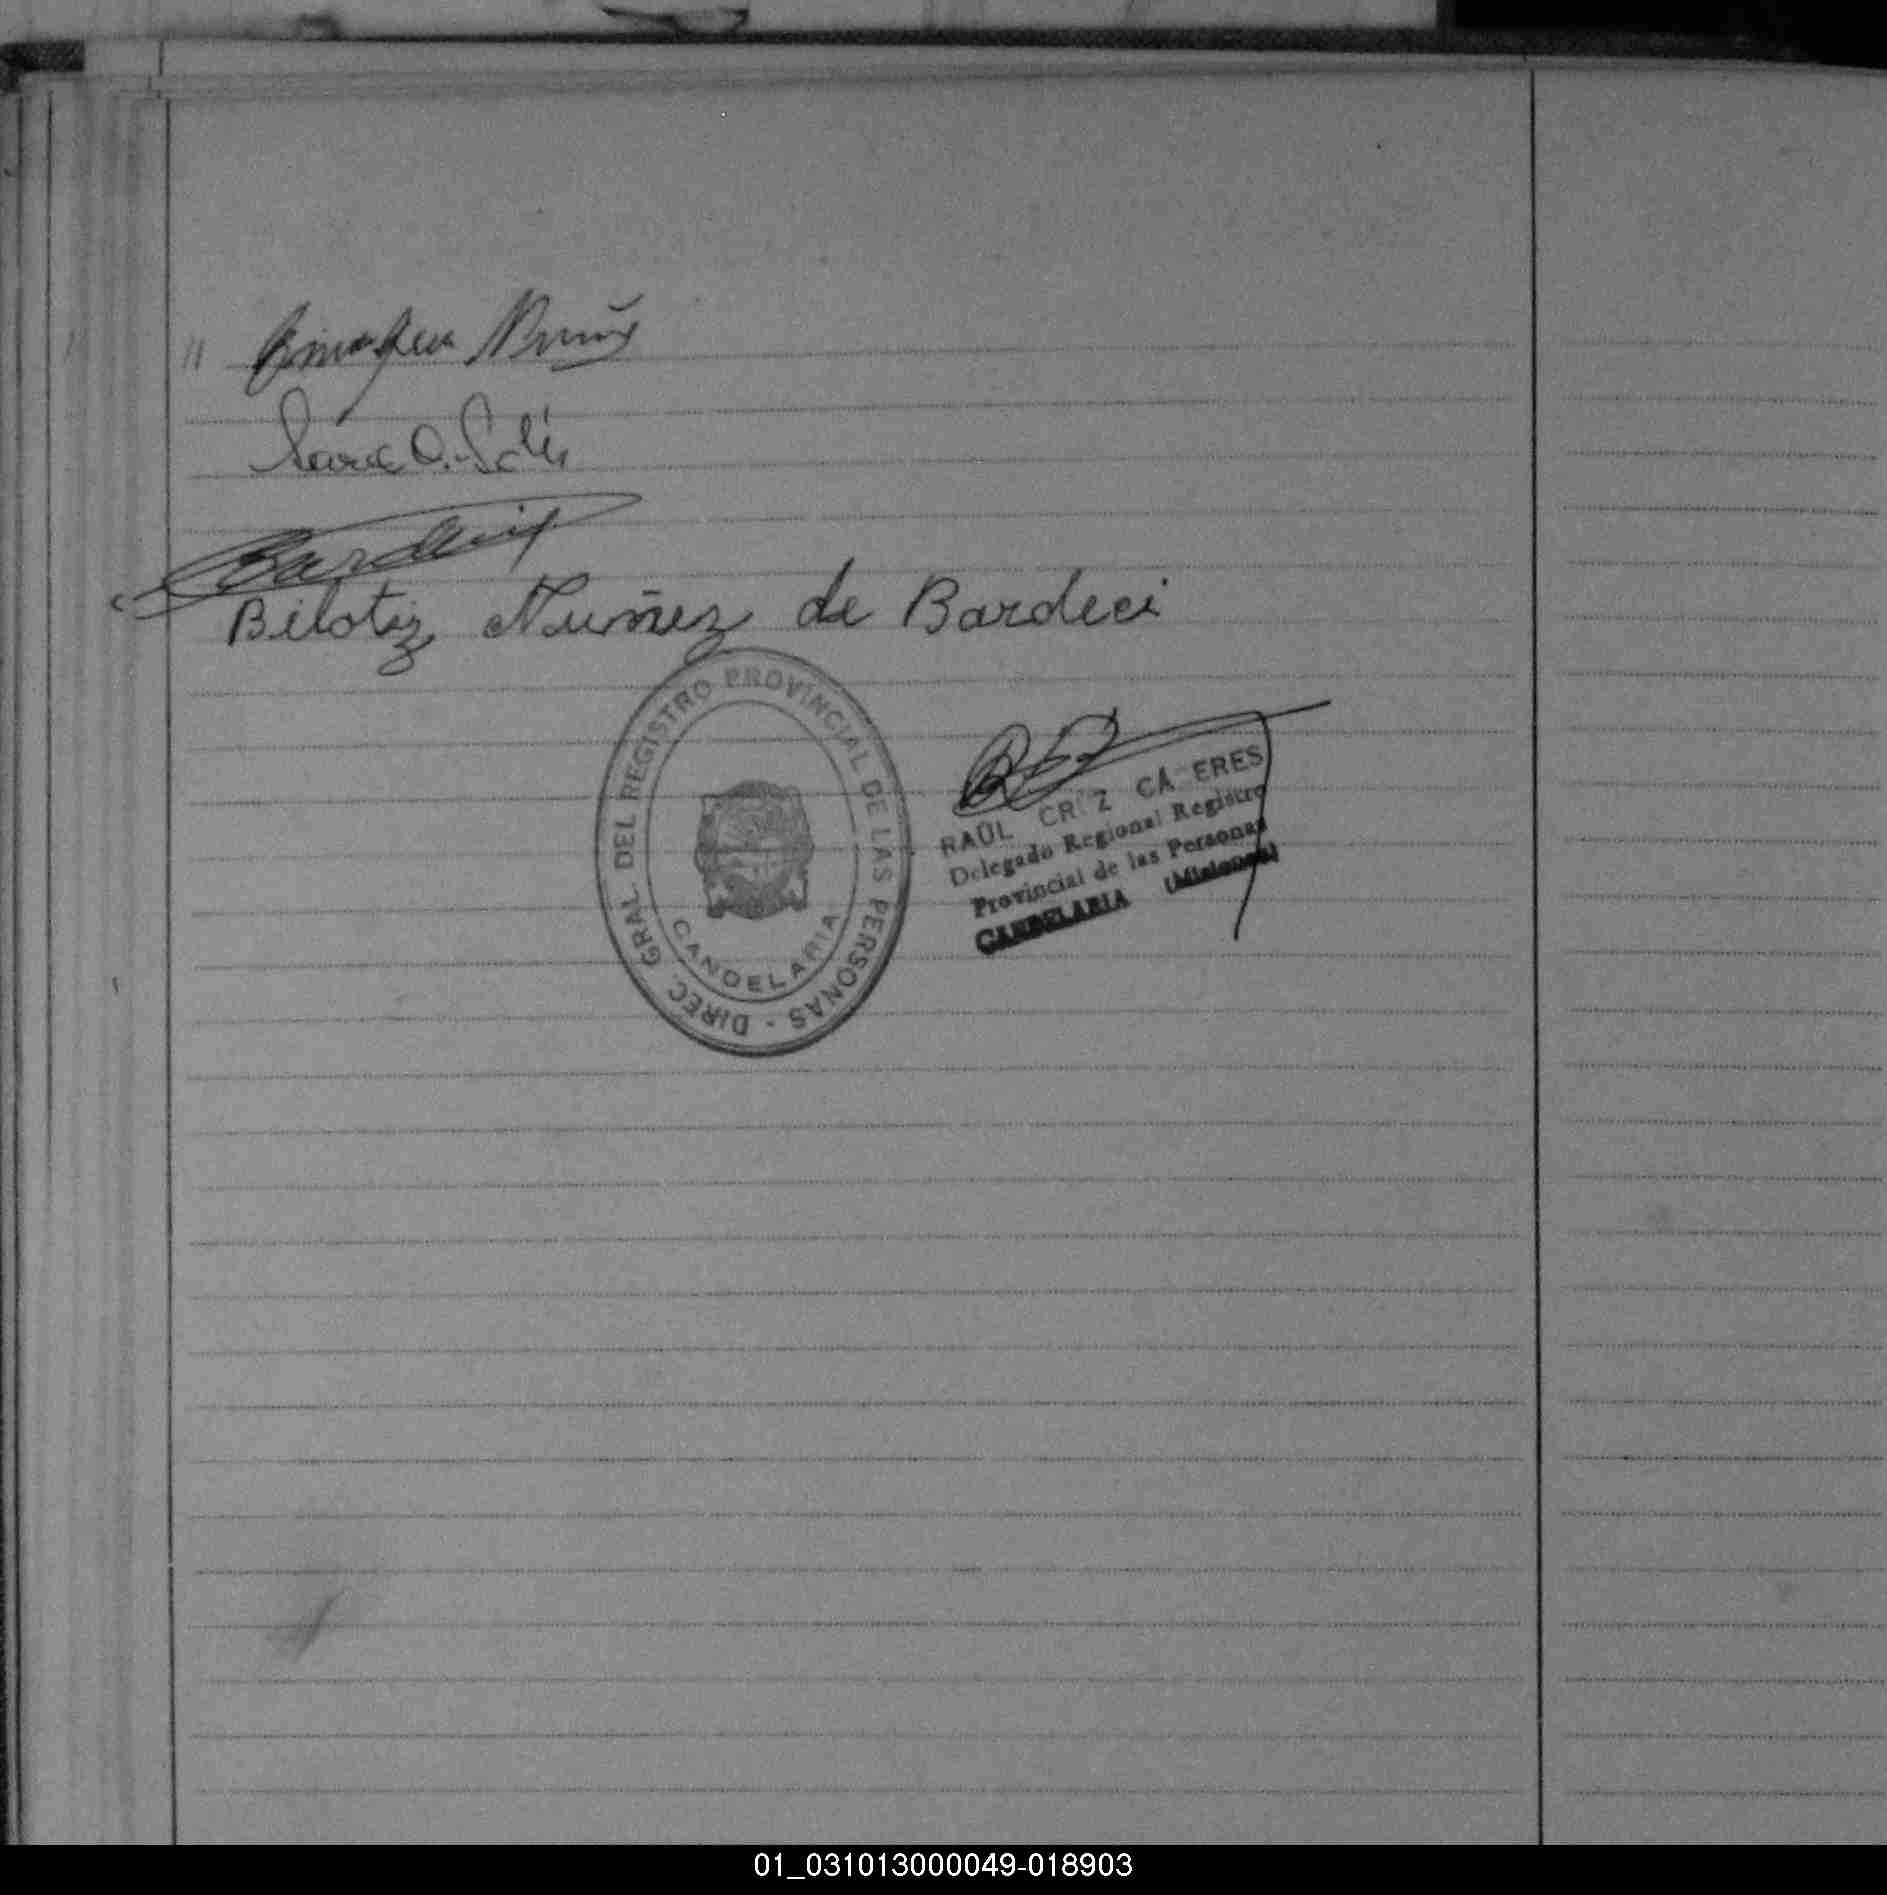 "
Sara O. Solis
Bardeci
Bilotiz Nuñez de Bardeci
DIREC. GRAL DEL REGISTRO PROVINCIAL DE LAS PERSONAS -
CANDELARIA
RAÚL CR Z CA ERES
Delegado Regional Registro
Provincial de las Personas
CANDELARIA (Misiones)
01_031013000049-018903